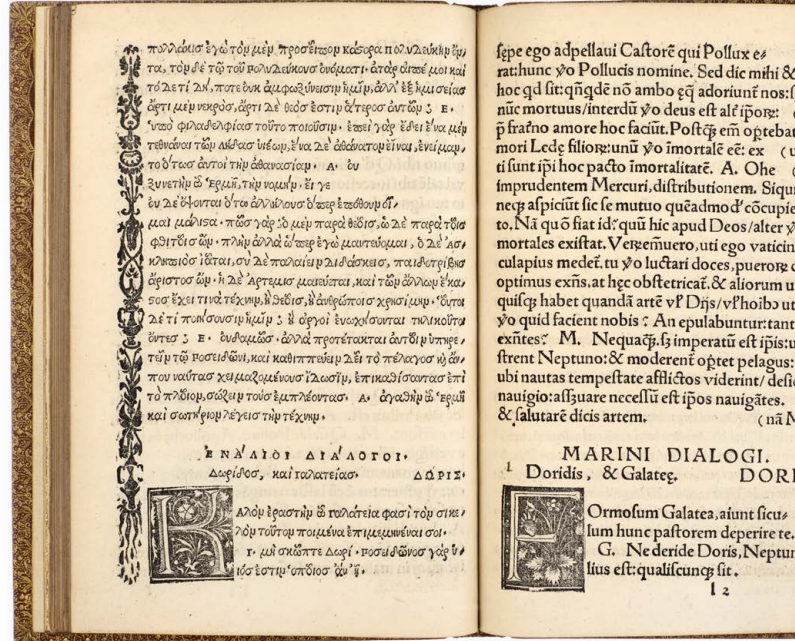 πολλάκις ἐγὼ τὸν μὲν προσεῖπον κάστορα πολυδεύκην ὄν,
τα, τὸν δὲ τῷ τοῦ πολυδεύκους ὀνόματι. ἀτὰρ εἰπέ μοι καὶ
τὸ δέ τι δὴ, ποτε οὐκ ἄμφω ξύνεισιν ἡμῖν, ἀλλ' ἐξ ἡμισείας
ἄρτι μὲν νεκρὸς, ἄρτι δὲ θεός ἐστιν ἅτερος αὐτῶν; Ε.
ὑπὸ φιλαδελφίας τοῦτο ποιοῦσιν. ἐπεὶ γὰρ ἔδει ἕνα μὲν
τεθνάναι τῶν λήδας υἱέων, ἕνα δὲ ἀθάνατον εἶναι, ἐνείμαν,
το οὕτως αὐτοὶ τὴν ἀθανασίαν. Α. οὐ
ξυνετὴν ὦ ἑρμῆ, τὴν νομήν. εἴ γε
οὐδὲ ὄψονται οὕτω ἀλλήλους ὅπερ ἐπόθουν οἶ,
μαι μάλιστα. πῶς γὰρ ὁ μὲν παρὰ θεοῖς, ὁ δὲ παρὰ τοῖς
φθιτοῖς ὤν. πλὴν ἀλλὰ ὥσπερ ἐγὼ μαντεύομαι, ὁ δὲ ἀσ,
κληπιὸς ἰᾶται, σὺ δὲ παλαίειν διδάσκεις, παιδοτρίβης
ἄριστος ὤν. ἡ δὲ ἄρτεμις μαιεύεται, καὶ τῶν ἄλλων ἕκα,
στος ἔχει τινὰ τέχνην, ἢ θεοῖς, ἢ ἀνθρώποις χρησίμην. οὗτοι
δὲ τί ποιήσουσιν ἡμῖν; ἢ ἀργοὶ εὐωχήσονται τηλικοῦτοι
ὄντες; Ε. οὐδαμῶς. ἀλλὰ προτέτακται αὐτοῖν ὑπηρε,
τεῖν τῷ ποσειδῶνι, καὶ καθιππεύειν δεῖ τὸ πέλαγος κἄν
που ναύτας χειμαζομένους ἴδωσιν, ἐπικαθίσαντας ἐπὶ
τὸ πλοῖον, σώζειν τοὺς ἐμπλέοντας. Α. ἀγαθὴν ὦ ἑρμῆ
καὶ σωτήριον λέγεις τὴν τέχνην.
ΕΝΑΛΙΟΙ ΔΙΑΛΟΓΟΙ.
Δωρίδος, καὶ γαλατείας. ΔΩΡΙΣ.
ΚΑλὸν ἐραστὴν ὦ γαλάτεια φασὶ τὸν σικε,
λὸν τοῦτον ποιμένα ἐπιμεμηνέναι σοι.
Γ. μὴ σκῶπτε Δωρί. ποσειδῶνος γὰρ ὑ,
ιός ἐστιν ὁποῖος ἂν ᾖ.
sępe ego adpellaui Castorē qui Pollux e,
rat: hunc ỹo Pollucis nomine. Sed dic mihi &
hoc qd sit: qñqdē nō ambo ęq̃ adoriunt nos: s
nūc mortuus/interdū ỹo deus est alt̃ ip̃oꝝ:
p̃ frat̃no amore hoc faciūt. Postq̃ em̃ op̃tebat
mori Ledę filioꝝ: unū ỹo īmortalē eē: ex (u
ti sunt ip̃i hoc pacto īmortalitatē. A. Ohe (
imprudentem Mercuri, distributionem. Siqui
neqꝫ aspiciūt sic se mutuo quēadmod' cōcupie
to. Nā quō fiat id: quū hic apud Deos/alter ỹ
mortales existat. Veꝝemuero, uti ego vaticin
culapius medet̃. tu ỹo luctari doces, pueroꝝ
optimus exñs. at hęc obstetricat̃. & aliorum u
quisqꝫ habet quandā artē vl' Dijs/vl' hoībꝫ ut
ỹo quid facient nobis? An epulabuntur: tant
exñtes? M. Nequaq̃. sꝫ imperatū est ip̃is: u
strent Neptuno: & moderent op̃tet pelagus:
ubi nautas tempestate afflictos viderint/ desi
nauigio: assuare necessū est ip̃os nauigātes.
& salutarē dicis artem. (nā M
MARINI DIALOGI.
Doridis, & Galateę. DORI
FOrmosum Galatea, aiunt sicu,
lum hunc pastorem deperire te.
G. Ne deride Doris, Neptun
lius est: qualiscunqꝫ sit.
l 2